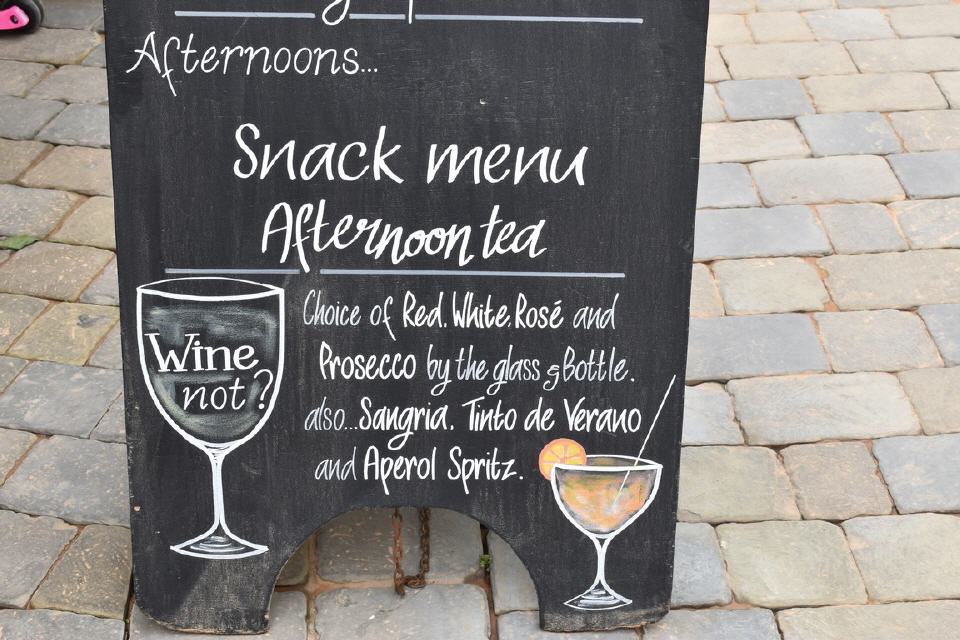 Afternoons...
Snack menu
Afternoon tea
Wine
not?
Choice of Red. White. Rosé and
Prosecco by the glass & Bottle.
also...Sangria. Tinto de Verano
and Aperol Spritz.